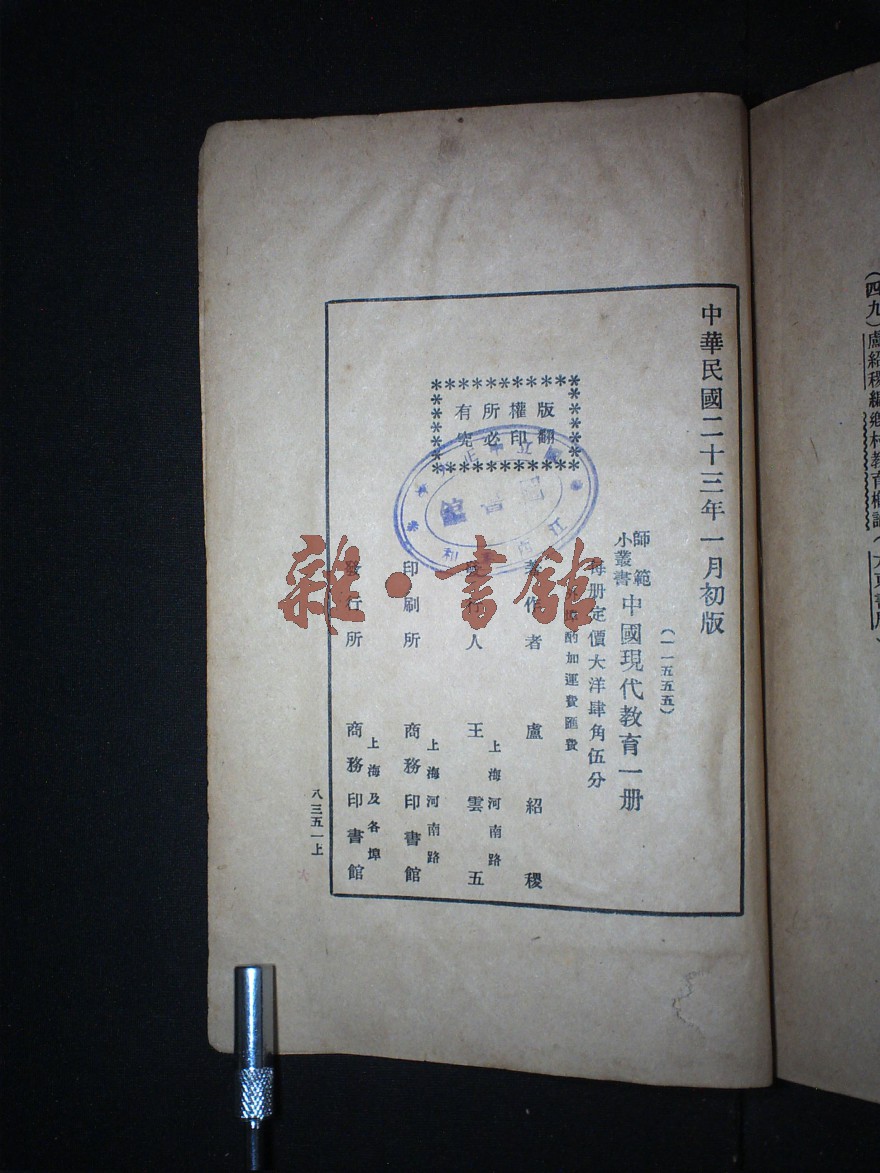 中華民國二十三年一月初版
(一一五五五)
師範小叢書 中國現代教育一册
每册定價大洋肆角伍分
外埠酌加運費匯費
版權所有
翻印必究
著作者 盧紹稷
發行人 王雲五
上海河南路
印刷所 商務印書館
上海河南路
發行所 商務印書館
上海及各埠
八三五一上
雜·書館
(四九)盧紹稷編鄉村教育概論(大東書局)